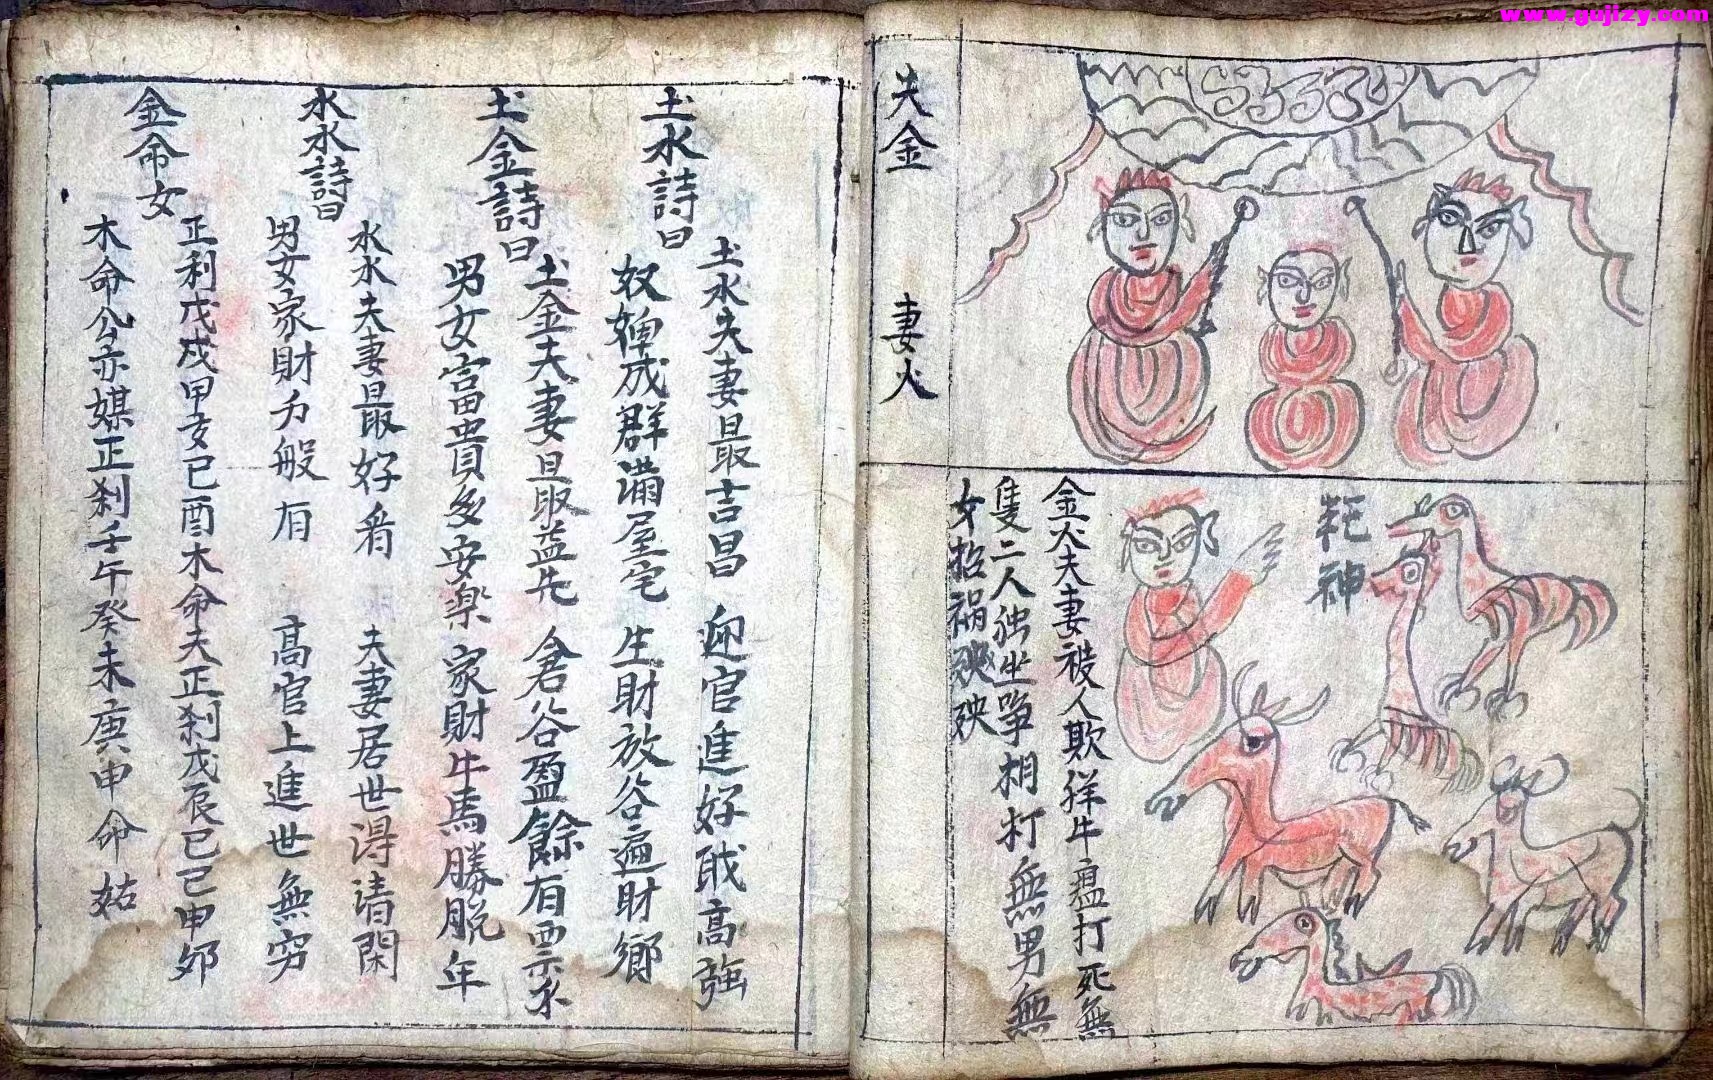 www.gujizy.com
夫金 妻火
耗神
金火夫妻被人欺 牲牛瘟打死無
隻二人独坐爭相打 無男無
女招禍殃殃
土水詩曰
土水夫妻最吉昌 迎官進好戝高強
奴婢成群滿屋宅 生財放谷遍財鄉
土金詩曰
土金夫妻最益先 倉谷盈餘有
男女富貴多安楽 家財牛馬勝脱年
水水詩曰
水水夫妻最好看 夫妻居世淂清閑
男女家財力般有 高官上進世無穷
金命女
正利戊戍甲亥巳酉木命夫正刹戊辰已巳申夘
木命公亦媒正刹壬午癸未庚申命姑